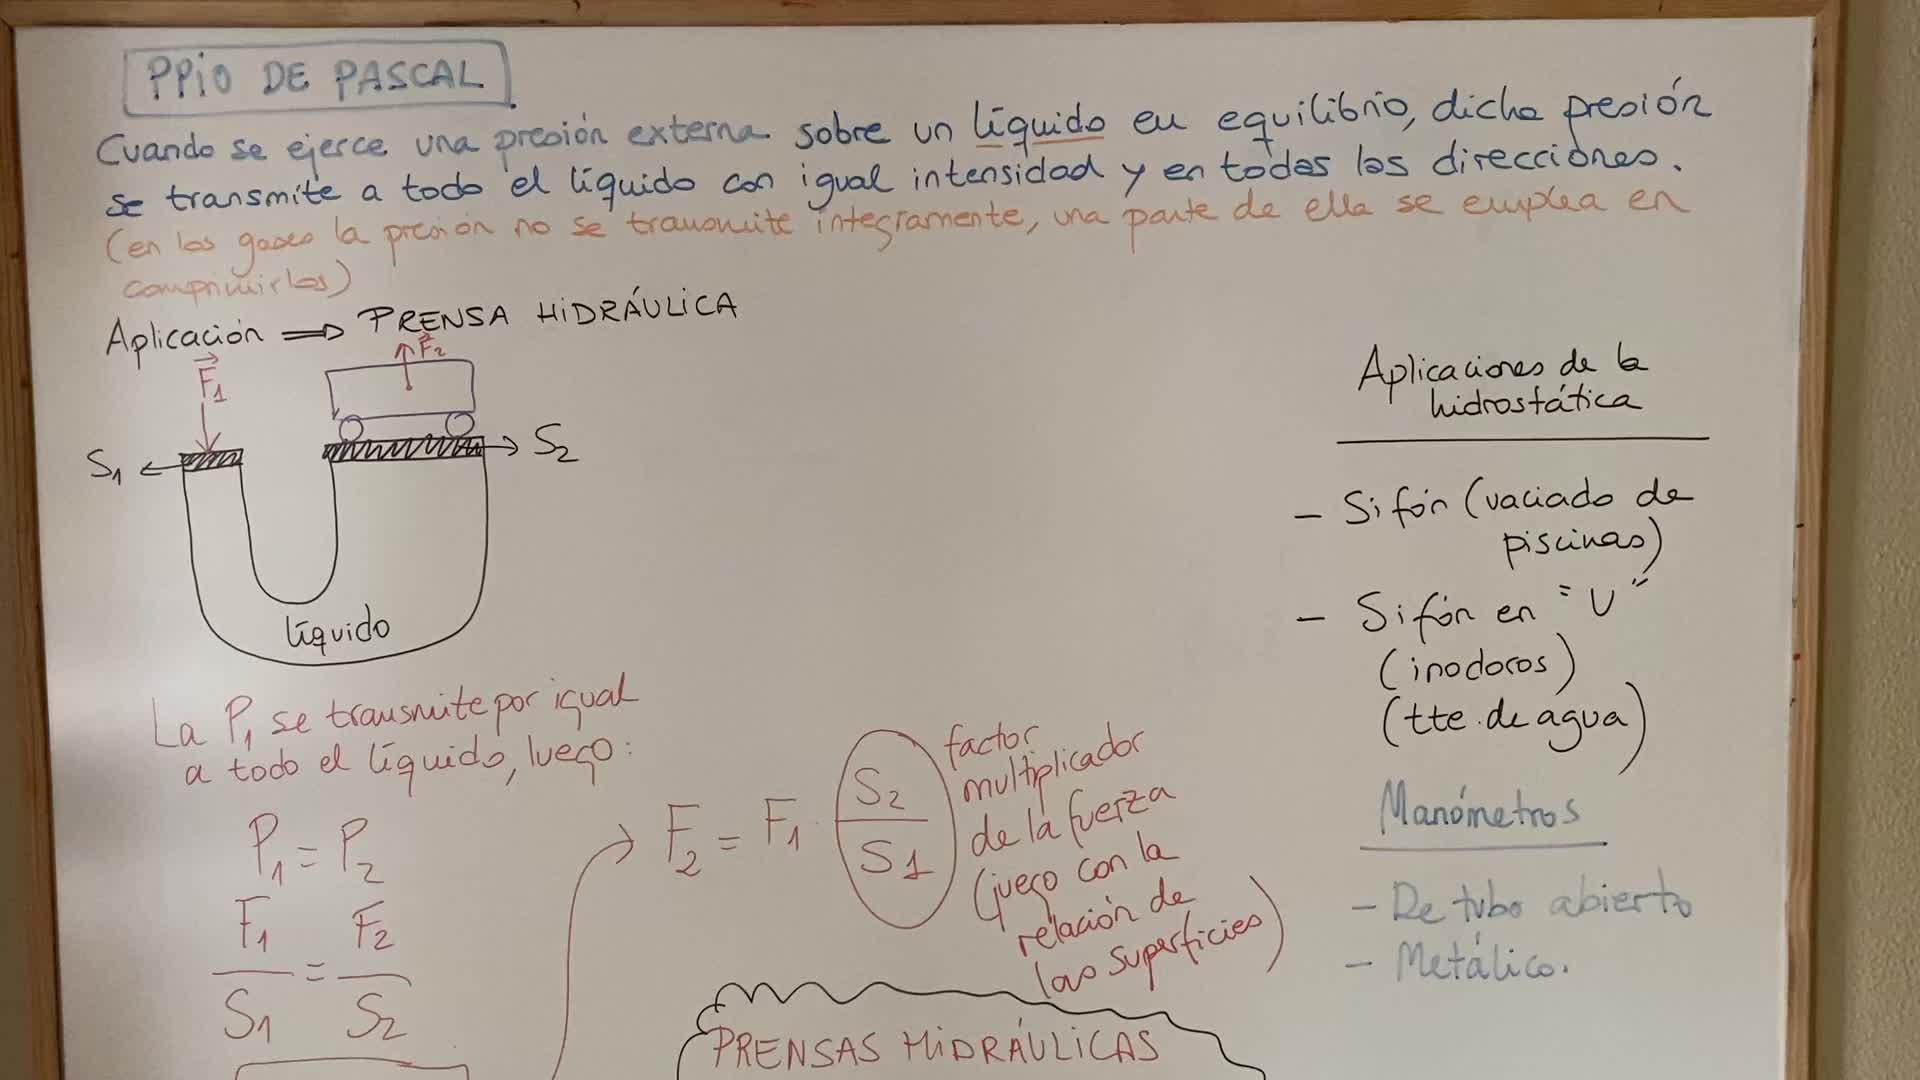 PPiO DE PASCAL
Cuando se ejerce una presión externa sobre un líquido en equilibrio, dicha presión
se transmite a todo el líquido con igual intensidad y en todas las direcciones.
(en los gases la presión no se transmite íntegramente, una parte de ella se emplea en
comprimirlos)
Aplicación ⇒ PRENSA HiDRÁULiCA
F₁
F₂
S₁
S₂
líquido
La P₁ se transmite por igual
a todo el líquido, luego:
P₁ = P₂
F₁/S₁ = F₂/S₂
F₂ = F₁ · S₂/S₁
factor
multiplicador
de la fuerza
(juego con la
relación de
las superficies)
PRENSAS HiDRÁULiCAS
Aplicaciones de la
hidrostática
- Sifón (vaciado de
piscinas)
- Sifón en "U"
(inodoros)
(tte. de agua)
Manómetros
- De tubo abierto
- Metálico.